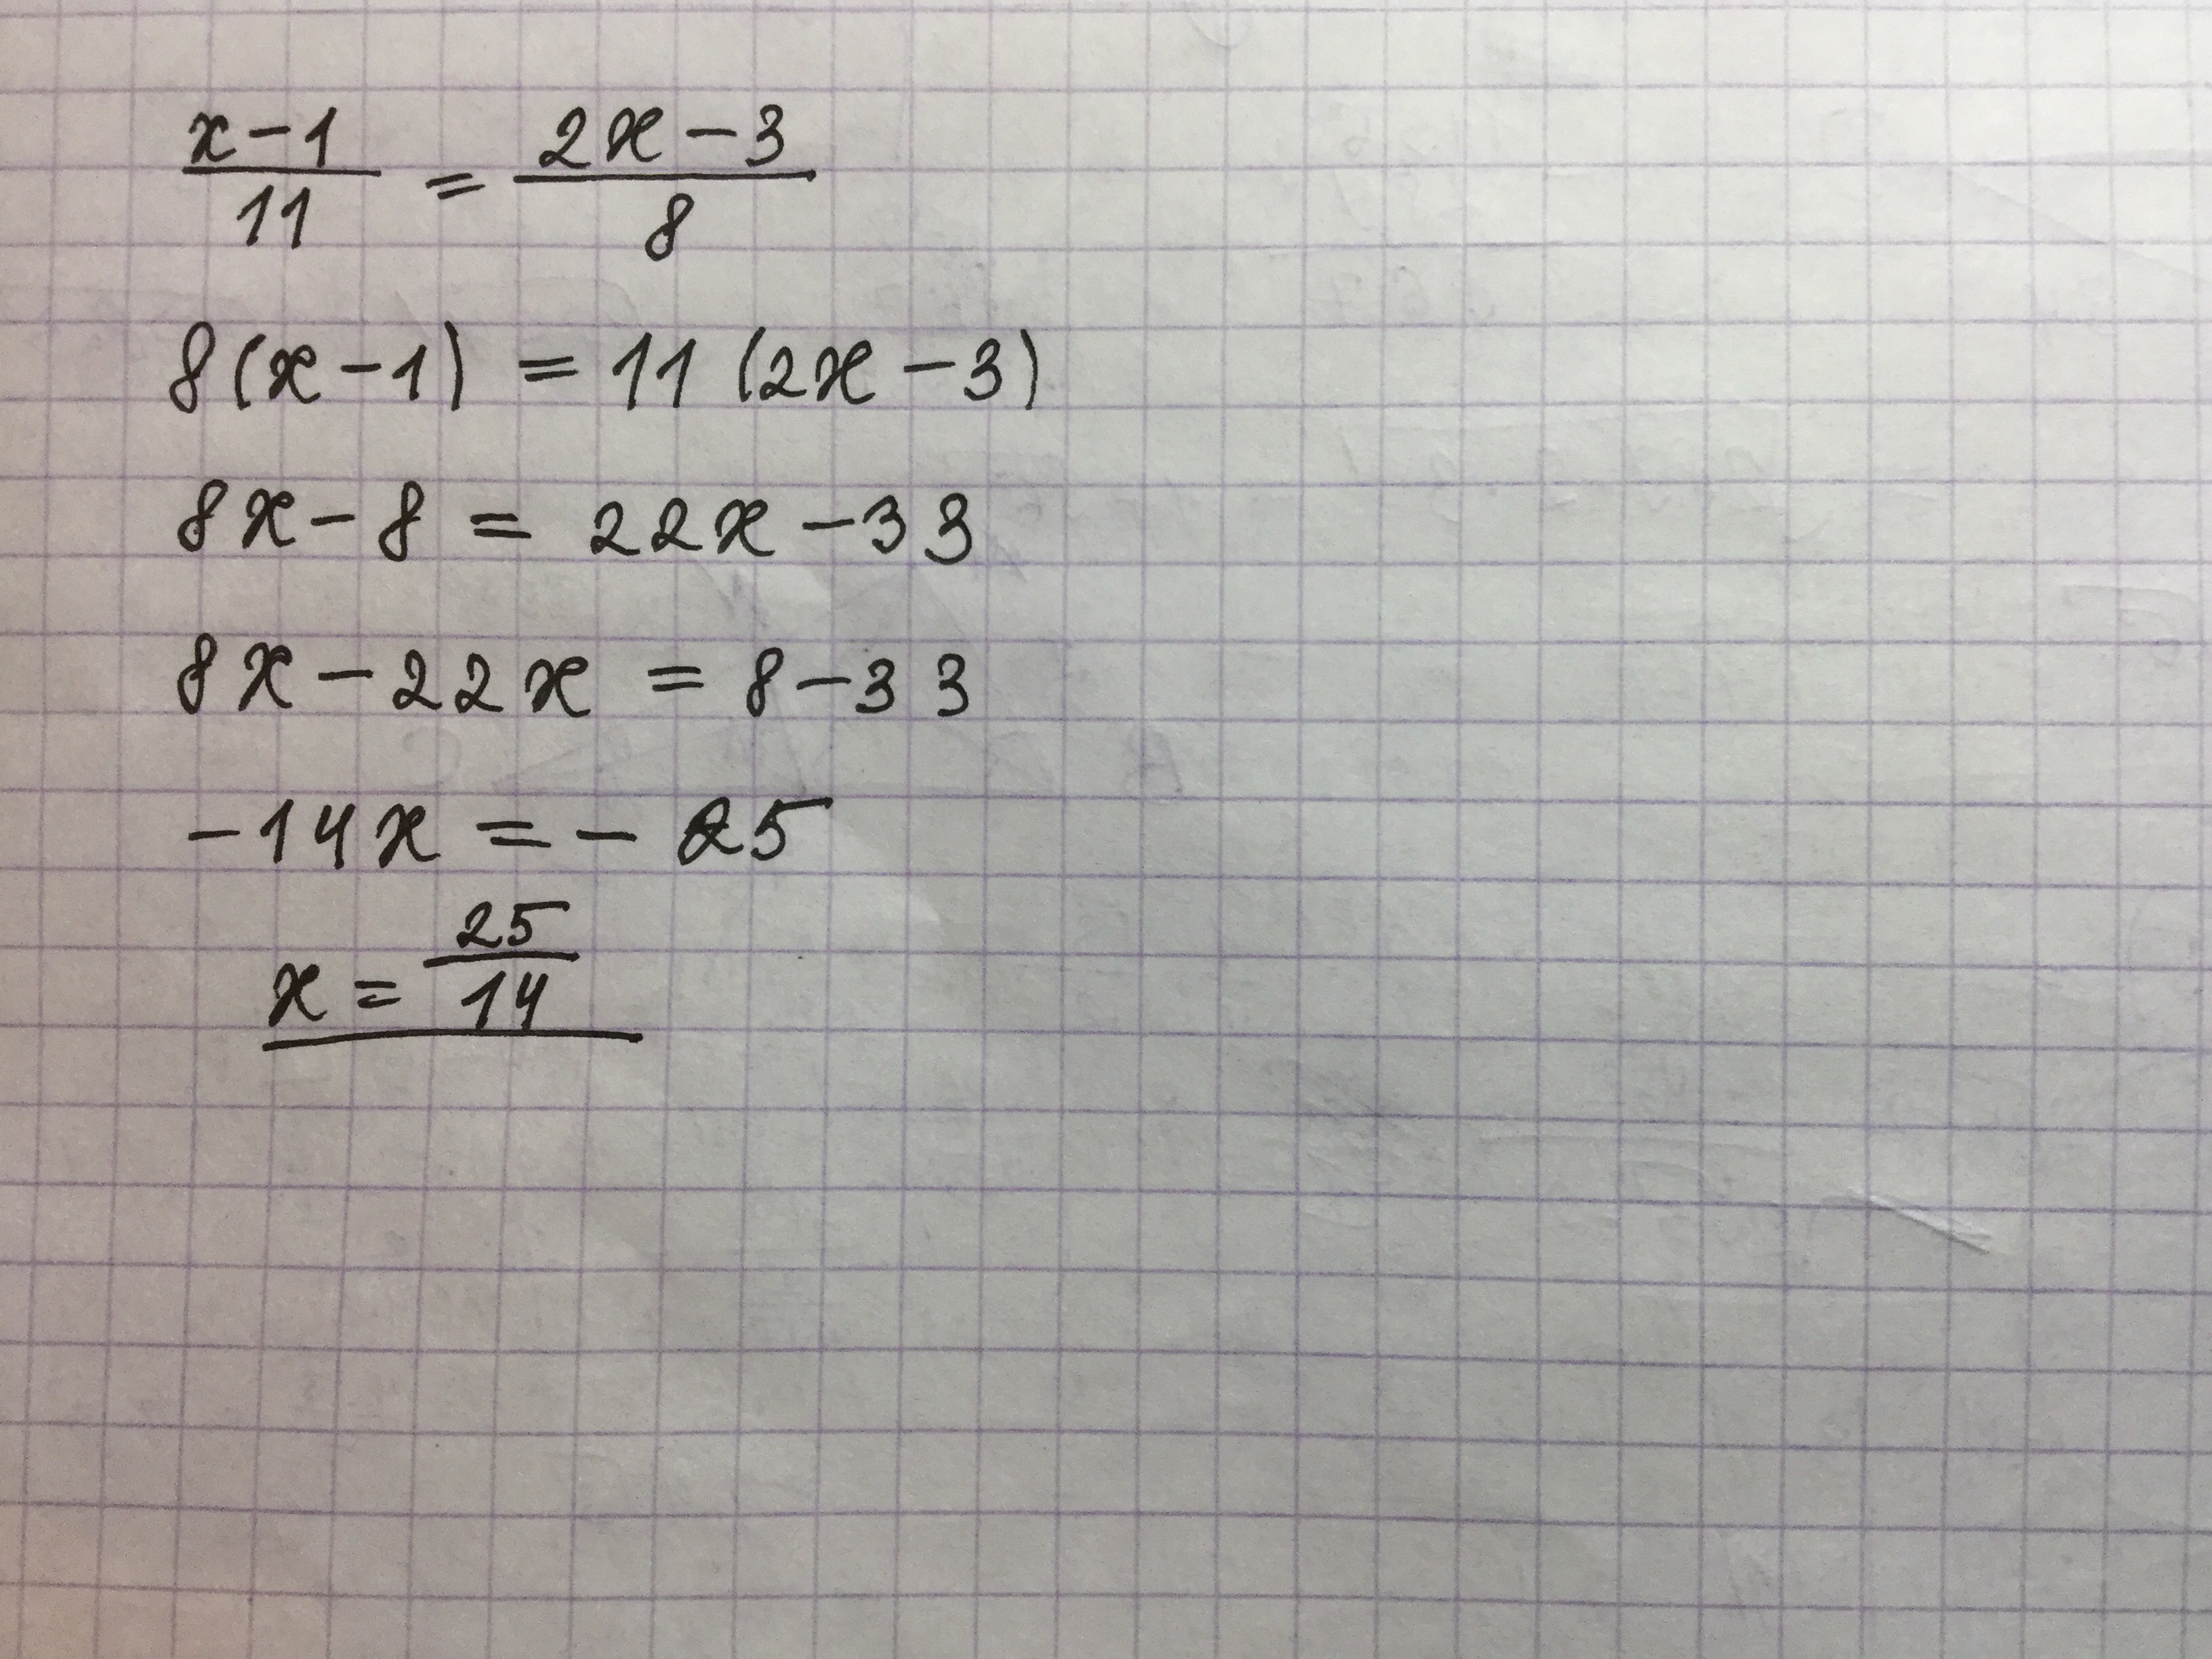 x-1/11 = 2x-3/8
8(x-1) = 11(2x-3)
8x-8 = 22x-33
8x-22x = 8-33
-14x = -25
x = 25/14